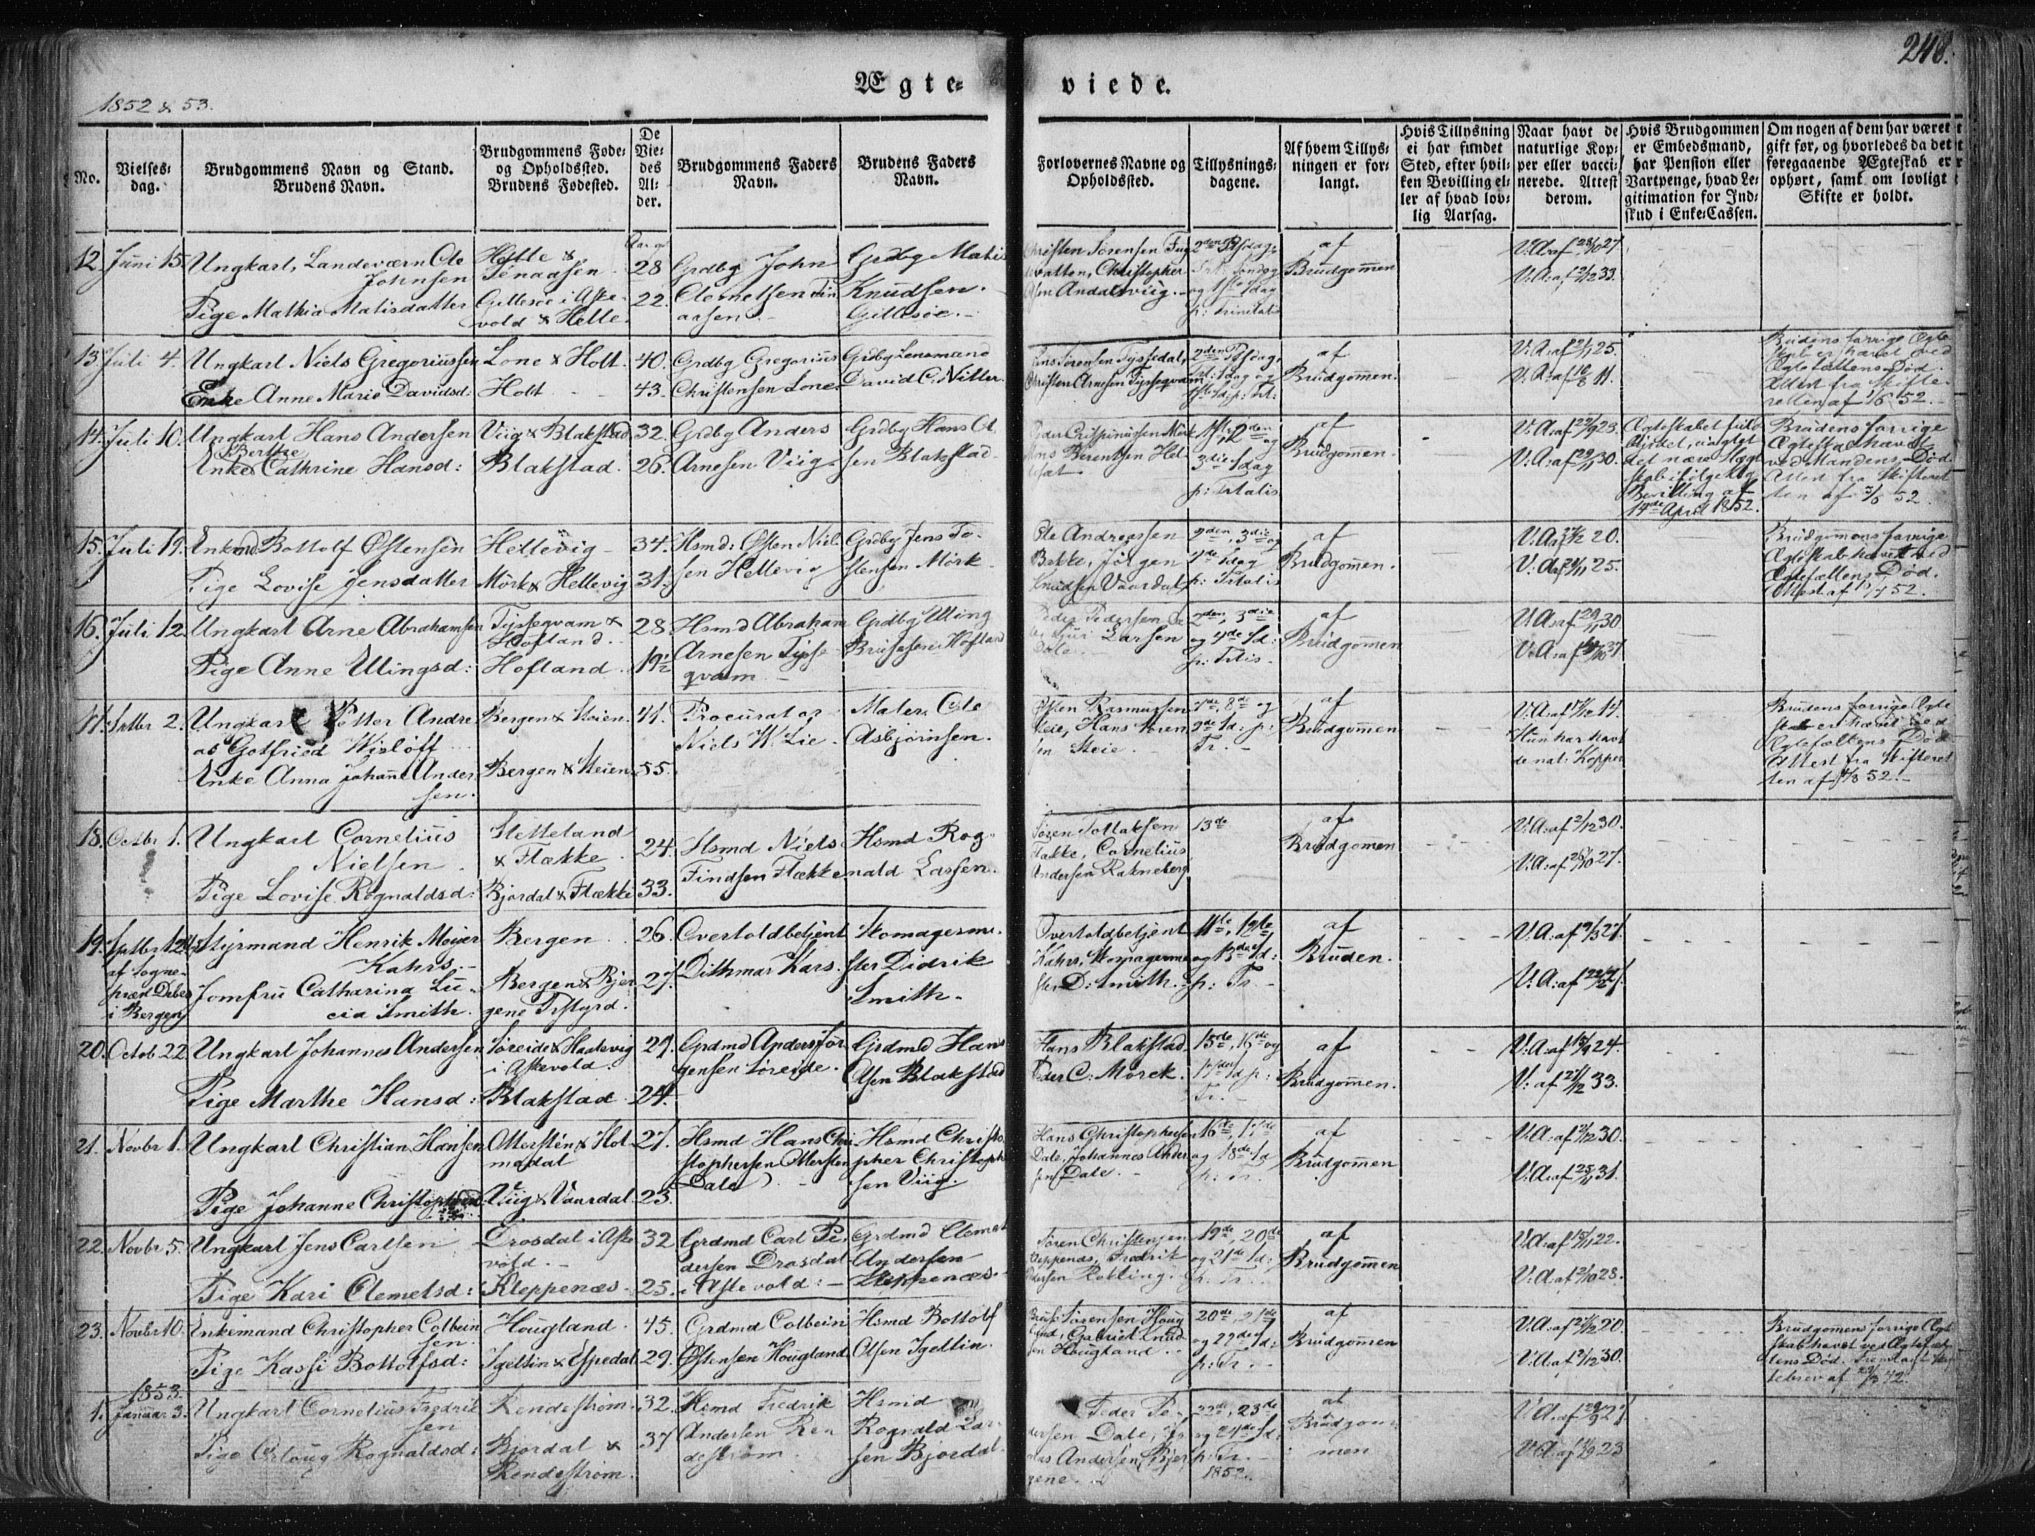 248.
1852 & 53.
Ægte-
viede.
No.
Vielses-
dag.
Brudgommens Navn og Stand.
Brudens Navn.
Brudgommens Føde-
og Opholdssted.
Brudens Fødested.
De
Vie-
des
Al-
der.
Brudgommens Faders
Navn.
Brudens Faders
Navn.
Forlovernes Navne og
Opholdssted.
Tillysnings-
dagene.
Af hvem Tillys-
ningen er for-
langt.
Hvis Tillysning
ei har fundet
Sted, efter hvil-
ken Bevilling el-
ler af hvad lov-
lig Aarsag.
Naar havt de
naturlige Kop-
per eller vacci-
nerede. Attest
derom.
Hvis Brudgommen
er Embedsmand,
har Pension eller
Vartpenge, hvad Le-
gitimation for Ind-
skud i Enke-Cassen.
Om nogen af dem har været
gift før, og hvorledes da det
foregaaende Ægteskab er
ophørt, samt om lovligt
Skifte er holdt.
12. Juni 15. Ungkarl, Landeværn Ole
Johnsen
Pige Mathia Matisdatter
Helle &
Tenaasen
Gillesøe i Aske-
vold & Helle.
28
22.
Grdbg John
Clemetsen
aasen.
Grdbg Matis
Knudsen
Gillesøe.
Christen Sørensen
Christopher
Olsen Andalsviig.
af
Brudgom̅en
V:A:af 23/10 27.
V:A:af 2/12 33.
13. Juli 4. Ungkarl Niels Gregoriussen
Enke Anne Marie Davidsd:
Lone & Holt.
Holt
40.
43.
Grdbg Gregorius
Christensen Lone
Grdbg Lensmand
David C. Nitter.
Jens Sørensen Tyssedal,
Christen Arnesen Tyssegvam
af
Brudgom̅en.
V:A:af 2/1 25.
V:A:af 10/8 11.
Brudens forrige Ægte
skab er hævet ved
Ægtefællens Død.
Attest fra Skifte-
retten af 1/6 52.
14. Juli 10. Ungkarl Hans Andersen
Berthe
Enke Cathrine Hansd:
Viig & Blakstad
Blakstad.
32.
26.
Grdbg Anders
Arnesen Viig
Grdbg Hans Ol
sen Blakstad.
Peder Crispinussen Mørk
Jens Berentsen Hel-
lesæt
1ste, 2den og
3die Sdag
p: Tr:tatis
af
Brudgom̅en.
V:A:af 22/9 23.
V:A:af 29/1 30.
Ægteskabet fuld
byrdet, uagtet
det nære Slægt
skab ifølge Kgl
Bevilling af
14de April 1852.
Brudens forrige
Ægteskab hævet
ved Mandens Død.
Attest fra Skifteret
ten af 7/6 52.
15. Juli 19. Enkemd. Bottolf Østensen
Pige Lovise Jensdatter
Hellevig
Mørk & Hellevig
34.
31.
Hsmd: Østen Niel-
sen Hellevig
Grdbg Jens To-
stensen Mørk
Ole Andreassen
Bakke, Jørgen
Knudsen Vaardal
2den, 3die og
4de Sdag
p: Tr:tatis
af
Brudgom̅en.
V:A:af 2/12 20.
V:A:af 2/11 25.
Brudgom̅ens forrige
Ægteskab hævet ved
Ægtefællens Død.
Attest af 12/7 52.
16. Juli 12. Ungkarl Arne Abrahamsen
Pige Anne Ellingsd:
Tyssegvam &
Hofland.
Hofland.
28.
19½
Hsmd Abraham
Arnesen Tysse
gvam
Grdbg Elling
Brusesen Hofland
Peder Pedersen
Larsen
Dale
2den, 3die
og 4de Sd:
p: Tr:tis
af
Brudgom̅en
V:A:af 29/1 30
V:A:af 37
17. Septbr 2. Ungkarl Petter Andre
as Gotfried Wisløff
Enke Anna Johanne Ander
sen.
Bergen & Steien.
Bergen & Steien
41.
55.
Procurator
Niels W. Lie.
Maler Ole
Asbjørnsen.
Østen Rasmussen
Steie, Hans Soren
sen Steie
7de, 8de og
9de Sd: p:
Tr.
af
Brudgom̅en
V:A:af 17/12 14.
Hun har havt
de nat: Kopper
Brudens forrige Ægte
skab er hævet ved
Ægtefællens Død
Attest fra Skifteret
ten af 8 52.
18. Octbr 1. Ungkarl Cornelius
Nielsen
Pige Lovise Rognaldsd:
Stelleland
& Flække
Bjordal & Flække
24.
33.
Hsmd Niels
Findsen Flække
Hsmd Rog-
nald Lassen.
Søren Tollaksen
Flække, Cornelius
Andersen Rakneberg
13de
af
Brudgom̅en
V:A:af 2/12 30.
V:A:af 26/10 27.
19. Septbr 12
af Sogne-
præst Debes
i Bergen
Styrmand Henrik Meijer
Kahrs
Jomfru Catharina Lu-
cia Smith.
Bergen.
Bergen & Bjer
gene
26.
27.
Overtoldbetjent
Dithmar Kars
Skomagerme-
ster Didrik
Smith.
Overtoldbetjent
Kahrs, Skomagerme
ster D: Smith.
11te, 12te
og 13de Sd:
p: Tr
af
Bruden.
V:A:af 9/3 27.
V:A:af
20. Octob 22 Ungkarl Johannes Andersen
Pige Marthe Hansd:
Søreide & Haalevig
i Askevold.
Blakstad
29.
24.
Grdmd Anders Jør
gensen Søreide.
Grdmd Hans
Olsen Blakstad
Hans Blakstad
Peder C: Mørck.
15de, 16de og
17de Sd p:
Tr.
af
Brudgom̅en.
V:A:af 15/9 24.
V: af 27/12 33.
21. Novbr 1. Ungkarl Christian Hansen
Pige Johanne Christophersd
Otterstén & Hol
medal
Viig & Vaardal.
27.
23.
Hsmd Hans Chri
stophersen Ottersten
Dale
Hsmd Christo
pher Christoph
sen Viig.
Hans Christophersen
Dale, Johannes Ander
sen Dale.
16de, 17de
og 18de Sd
p: Tr:
af
Brudgom̅en
V:A:af 2/12 30.
V:A:af 25/11 31.
22. Novbr 5. Ungkarl Jens Carlsen
Pige Kari Clemetsd:
Drosdal i Aske
vold.
Kleppenæs
32
25.
Grdmd Carl Pe-
dersen Drosdal
i Askevold:
Grdmd Clemet
Andersen
Kleppenæs
Søren Christensen
Kleppenæs, Fredrik
Pedersen
19de, 20de
og 21de Sd:
p: Tr:
af
Brudgom̅en
V:A:af 15/11 22.
V:A:af 2/10 28.
23. Novbr 10. Enkemand Christopher Colbein
sen
Pige Kassi Bottolfsd:
Hougland
Igeltin & Espedal
45.
29.
Grdmd Colbein
Østensen Hougland
Hsmd Bottolf
Olsen Igeltin.
Sørensen Houg
land, Gabriel Knud
sen Hougland
20de, 21de
og 22de Sd:
p: Tr.
af
Brudgom̅en
V:A:af 21/12 20.
V:A:af 2/12 30.
Brudgom̅ens forrige Ægte
skab hævet ved Ægtefæl-
lens Død. Fremlagt Skif
tebrev af 42.
1853.
1. Januar 3. Ungkarl Cornelius Fredrik
sen
Pige Orloug Rognaldsd:
Rendestrøm.
Bjordal &
Rendestrøm.
32.
37
Hsmd Fredrik
Andersen Ren
destrøm
Hsmd
Rognald Lar-
sen Bjordal
Peder Pe-
dersen Dale,
Andersen, Bjer
gene.
22de, 23de
og 24de Sd:
p: Tr.
1852.
af
Brudgom-
men
V:A:af 27
V:A:af 23